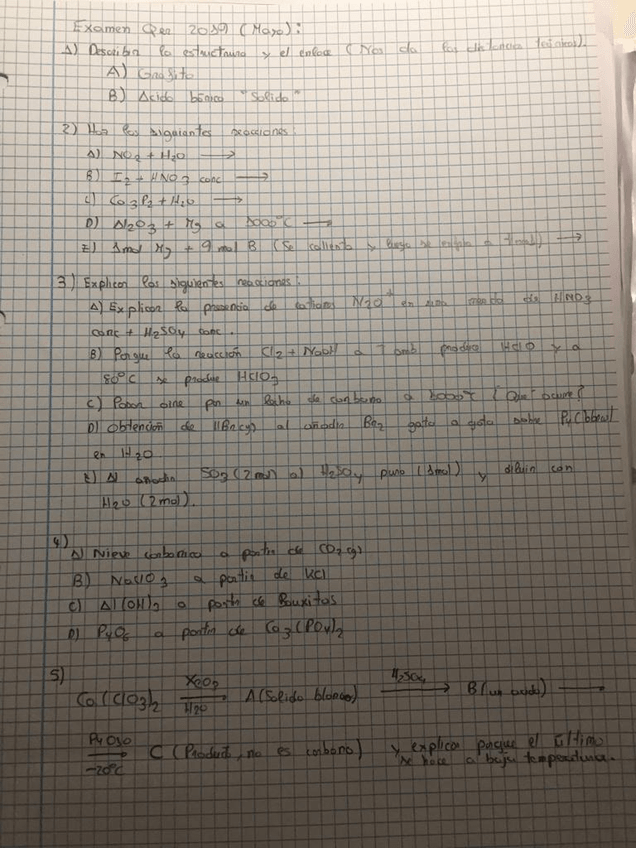 Examen Qen 2019 (Mayo):
1) Describir la estructura y el enlace (Nos da las distancias teóricas).
A) Grafito
B) Acido bórico "Solido"
2) Haz las siguientes reacciones:
A) NO2 + H2O →
B) I2 + HNO3 conc →
C) Ca3P2 + H2O →
D) Al2O3 + Mg a °C →
E) 1mol Mg + 9 mol B (Se calienta y luego se enfría a Tamb) →
3) Explicar las siguientes reacciones:
A) Explicar la presencia de cationes en una mezcla de HNO3
conc + H2SO4 conc.
B) Porque la reacción Cl2 + NaOH a T amb produce HClO y a
80°C se produce HClO3
C) Pasar aire por un lecho de carbono a ¿Que ocurre?
D) Obtención de HBr(g) al añadir Br2 gota a gota sobre P4
en H2O.
E) Al añadir SO3 (2mol) al H2SO4 puro (1mol) y diluir con
H2O (2mol).
4)
A) Nieve carbonica a partir de CO2(g)
B) NaClO3 a partir de KCl
C) Al(OH)3 a partir de Bauxitas
D) P4O6 a partir de Ca3(PO4)2
5)
Ca(ClO3)2 XeO3 → H2O A (Solido blanco) H2SO4 → B (un acido) →
P4O10 → -20°C C (Product, no es carbono) y explica porque el último
se hace a baja temperatura.